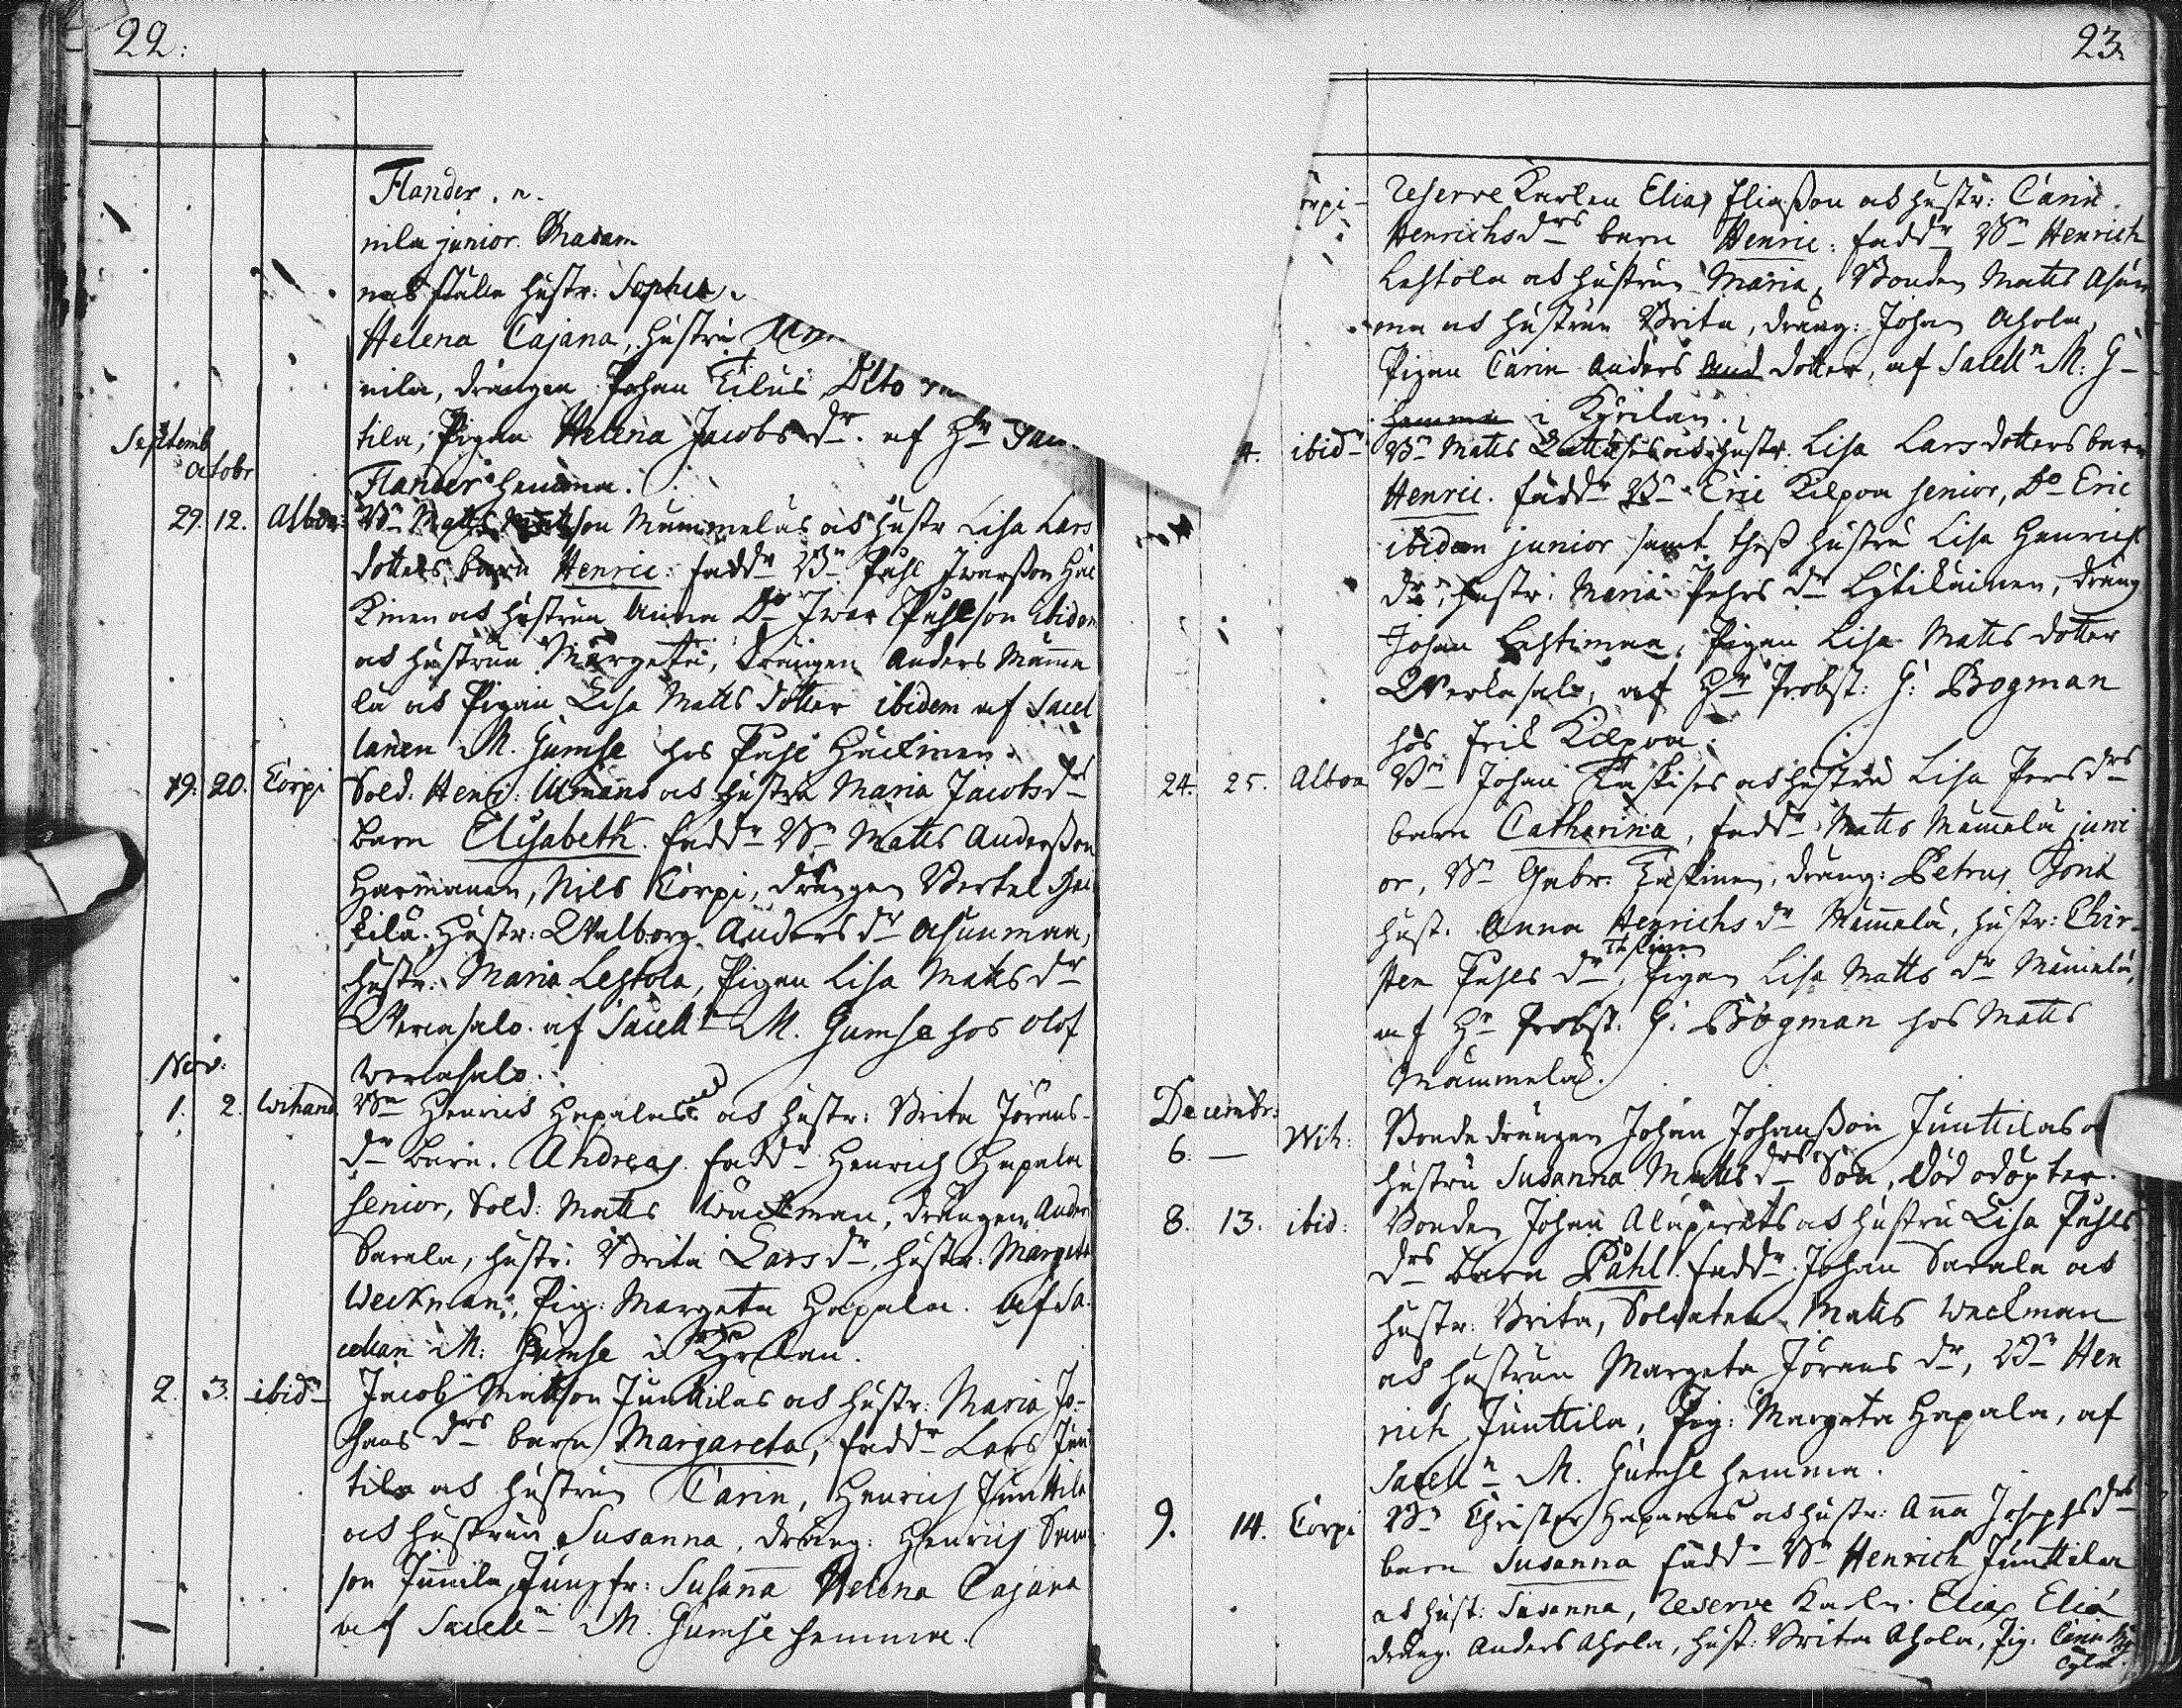 22:
Flander. n.
nila junior. Madam
nas ställe hustr: Sophia
Helena Cajana, hustru Ann
nila, drängen Johan Eilus Ditto
tila, Pigan Helena Jacobs dr. af Hr
Flander hemma.
Septemb
octobr
29. 12. Bn Matts Mattson Mummelas ock hustr Lisa Lars
dotters barn Henric: fadd: Bn Påhl Iwarsson Häc
kinen ock hustrun Anna Do Iwar Påhlson ibidem
ock hustrun Margeta, drängen Anders Mamme
la ock Pigan Lisa Matts dotter ibidem af Sacel
lanen M. Gumse hos Påhl Häckinen.
19. 20. Corpi Sold. Henr: Ulmans ock hustru Maria Jacobs drs
barn Elisabeth. fadd: Bn Matts Andersson
Harmanen, Nils Corpi, drängen Bertel Hei
kilä. Hustr: Walborg Anders dr Asunmaa,
hustr: Maria Lehtola, Pigan Lisa Matts dr
Wercasalo. af Sacelln M. Gumse hos Olof
wercasalo.
Nov:
1. 2. Wihand Bn Henrics Hapalas ock hustr: Brita Jörans
dr barn. Andreas. fadd: Henrich Hapala
senior, Sold: Matts Wäckman, drängen Ander
Sarala, hustr: Brita Lars dr, hustr: Margeta
Weckman, Pig: Margeta Hapala. af Sa
cellan M: Gumse i Kyrckan.
2. 3. ibidm Jacob Mattson Junttilas ock hustr: Maria Jo-
hans drs barn Margareta, fadd: Lars Jun
tila ock hustrun Carin, Henrich Junttila
ock hustrun Susanna, dräng: Henrich Sam
son Junnila, Jungfr: Susanna Helena Cajana
af Sacelln M. Gumse hemma.
23.
orpi reserve Karlen Elias Eliasson ock hustr: Carin
Henrichs drs barn Henric: fadd: Bn Henrich
Lehtola ock hustrun Maria, Bonden Matts Asun
maa ock hustrun Brita, dräng: Johan Ahola,
Pigan Carin Anders And dotter, af Sacelln M: G
hemma i Kyrckan.
4. ibidm Bn Matts ock hustr. Lisa Lars dotters barn
Henric. fadd: Bn Eric Kilpoa senior, Do Eric
ibidem junior samt thess hustru Lisa Henrichs
dr, hustr: Maria Pehrs dr Lytikäinen, dräng
Johan Lehtimaa, Pigan Lisa Matts dotter
Werkasalo, af Hr Probst: G: Bogman
hos Erik Kilpoa.
24. 25. Altoa Bn Johan Taskises ock hustru Lisa Pers drs
barn Catharina, fadd: Matts Mämmelä juni
or, Bn Gabr: Taskinen, dräng: Petrus
hust. Anna Henrichs dr Mämmelä, hustr: Chir
sten Påhls dr Taskinen, Pigan Lisa Matts dr Mämmelä,
af Hr Probst. G: Bogman hos Matts
Mämmelä.
Decembr:
6. — Wih: Bonde drängen Johan Johansson Junttilas o
hustru Susanna Matts drs Son, död odöpter.
8. 13. ibid: Bonden Johan Alaperets ock hustru Lisa Påhls
drs barn Påhl. fadd: Johan Sarala ock
hustr: Brita, Soldaten Matts Weckman
ock hustrun Margeta Jörans dr, Bn Hen
rich Junttila, Pig: Margeta Hapala, af
Sacelln M. Gumse hemma.
9. 14. Corpi Bn Christer Hapanes ock hustr: Anna Josephs drs
barn Susanna fadd: Bn Henrich Junttila
ock hust: Susanna, reserve Karlen. Elias Elia
dräng. Anders Ahola, hust: Brita Ahola, Pig: